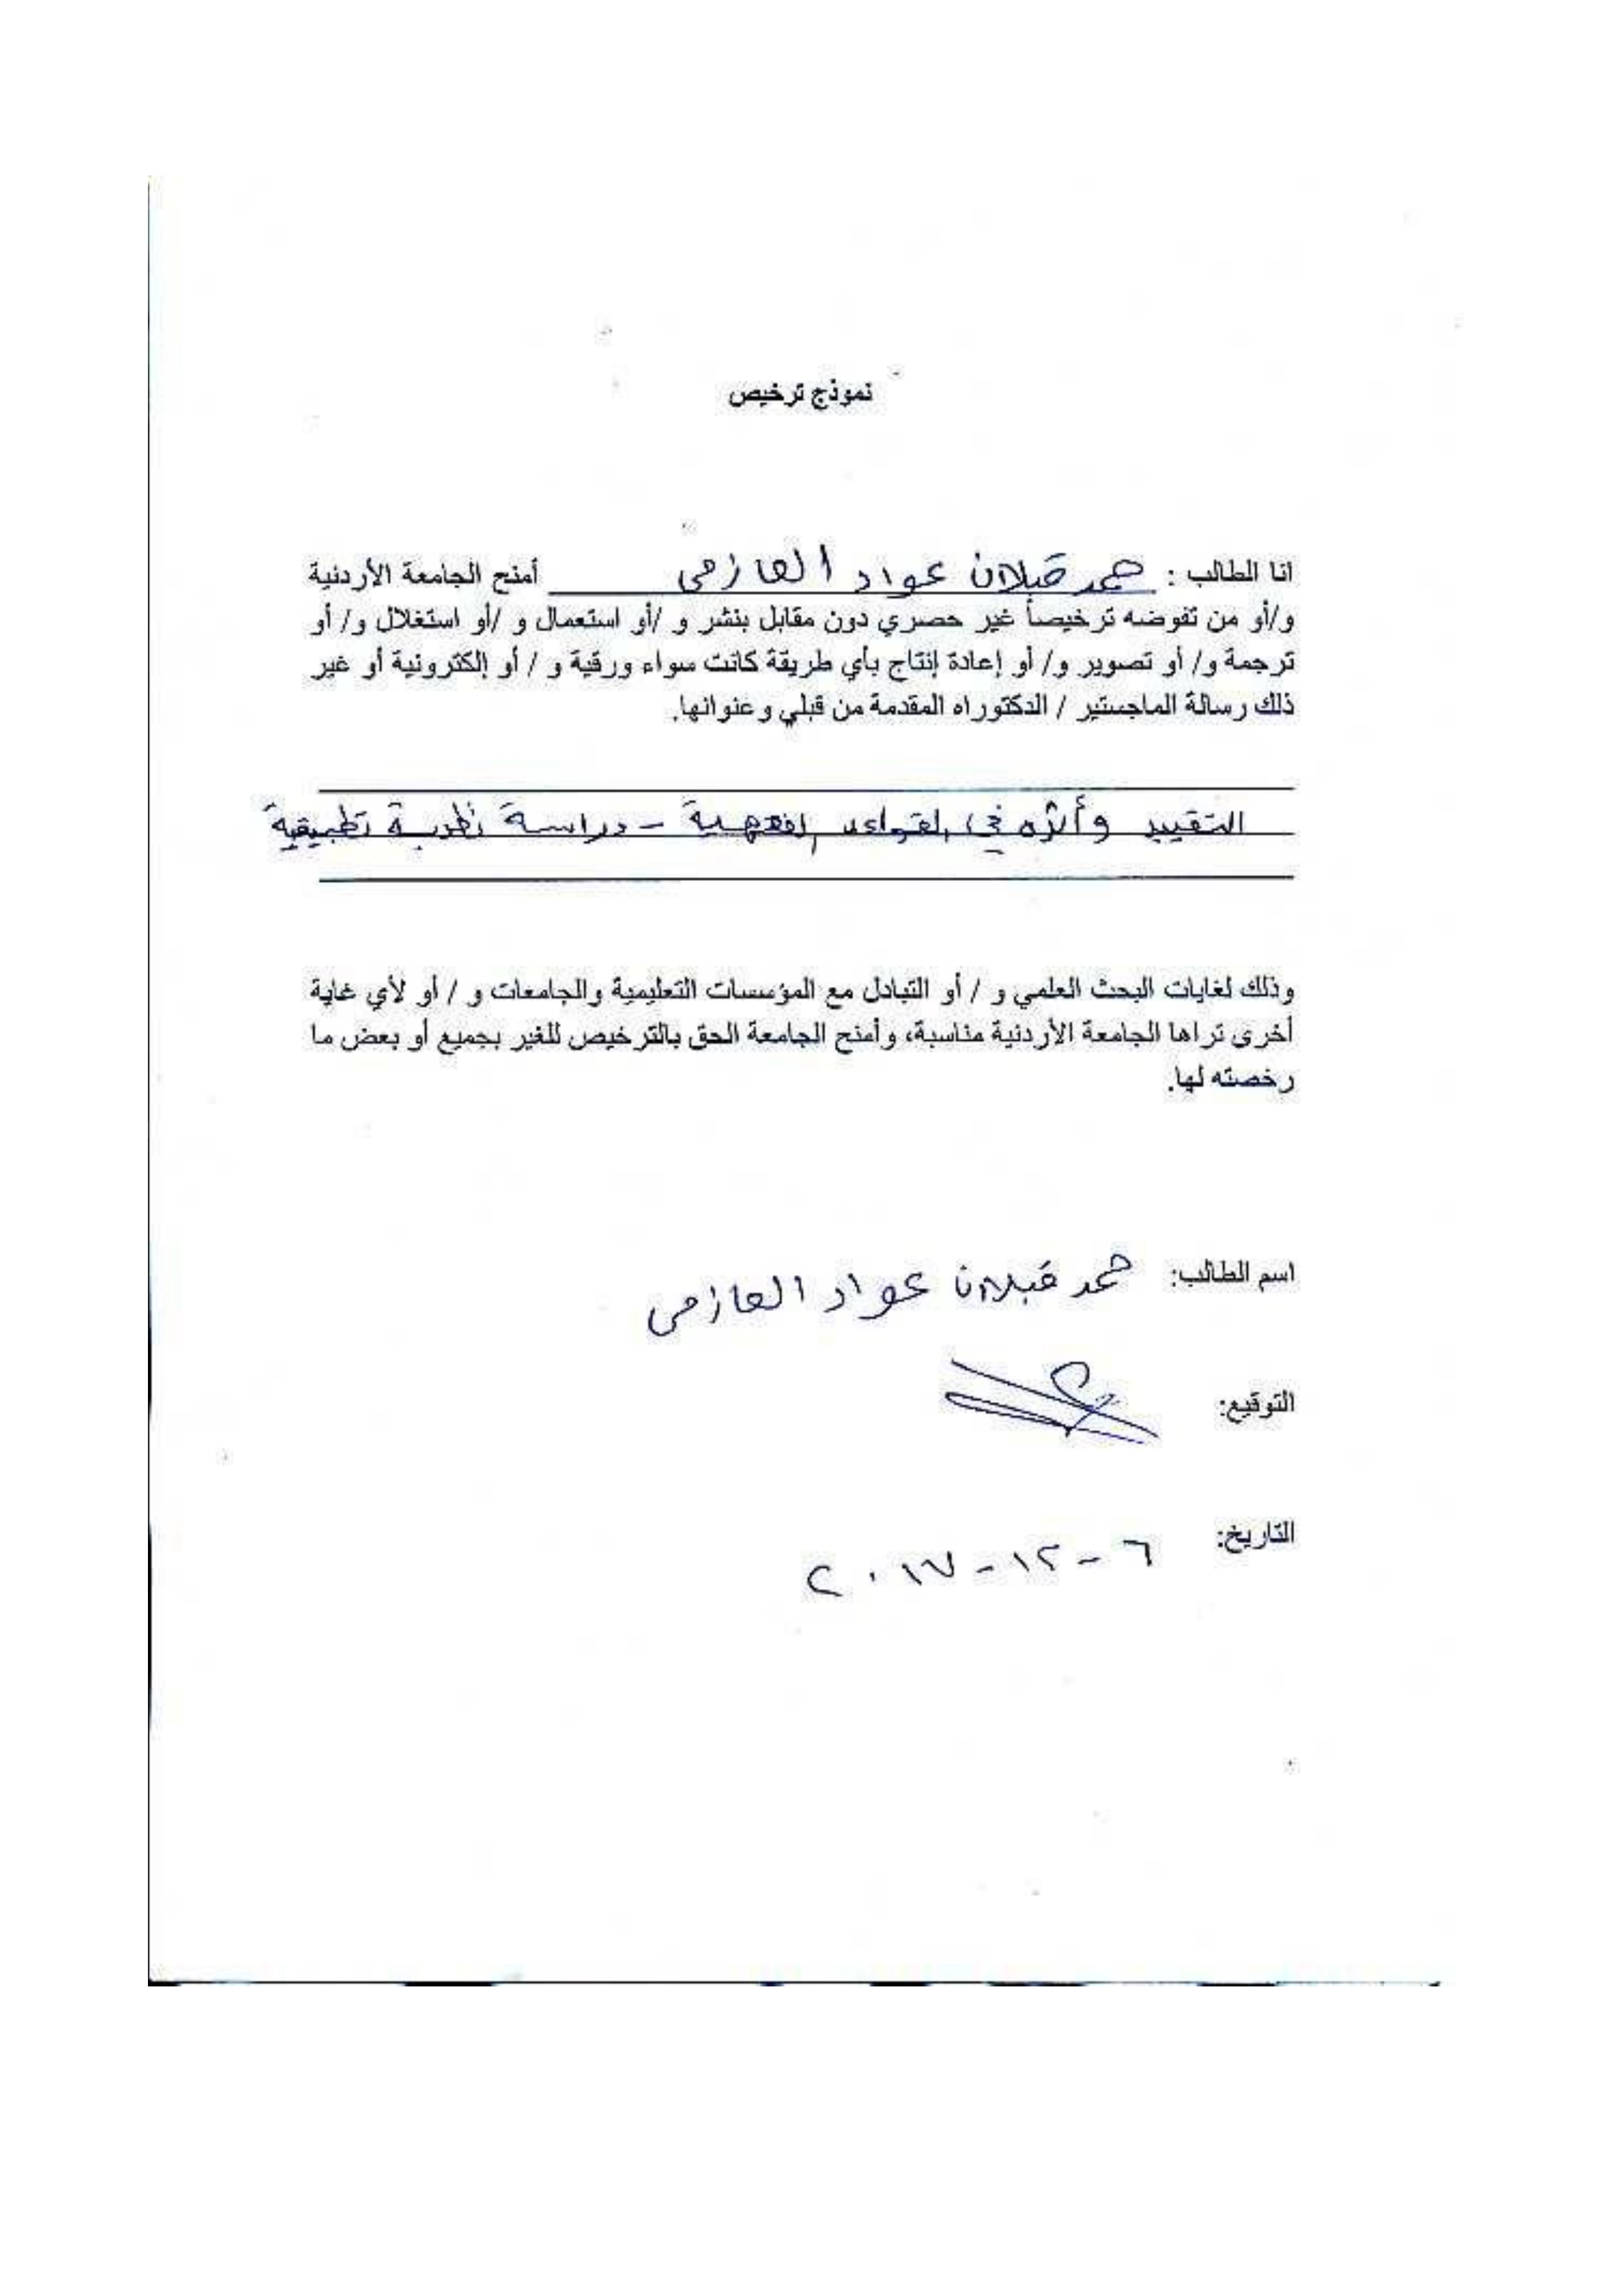 نموذج ترخيص
انا الطالب : حمد قبلان عواد العازمي أمنح الجامعة الأردنية
و/أو من تفوضه ترخيصاً غير حصري دون مقابل بنشر و /أو استعمال و /أو استغلال و/ أو
ترجمة و/ أو تصوير و/ أو إعادة إنتاج بأي طريقة كانت سواء ورقية و / أو إلكترونية أو غير
ذلك رسالة الماجستير / الدكتوراه المقدمة من قبلي وعنوانها.
التقييد وأثره في القواعد الفقهية - دراسة نظرية تطبيقية
وذلك لغايات البحث العلمي و / أو التبادل مع المؤسسات التعليمية والجامعات و / أو لأي غاية
أخرى تراها الجامعة الأردنية مناسبة، وأمنح الجامعة الحق بالترخيص للغير بجميع أو بعض ما
رخصته لها.
اسم الطالب: حمد قبلان عواد العازمي
التوقيع:
التاريخ: ٦ - ١٢ - ٢٠١٧